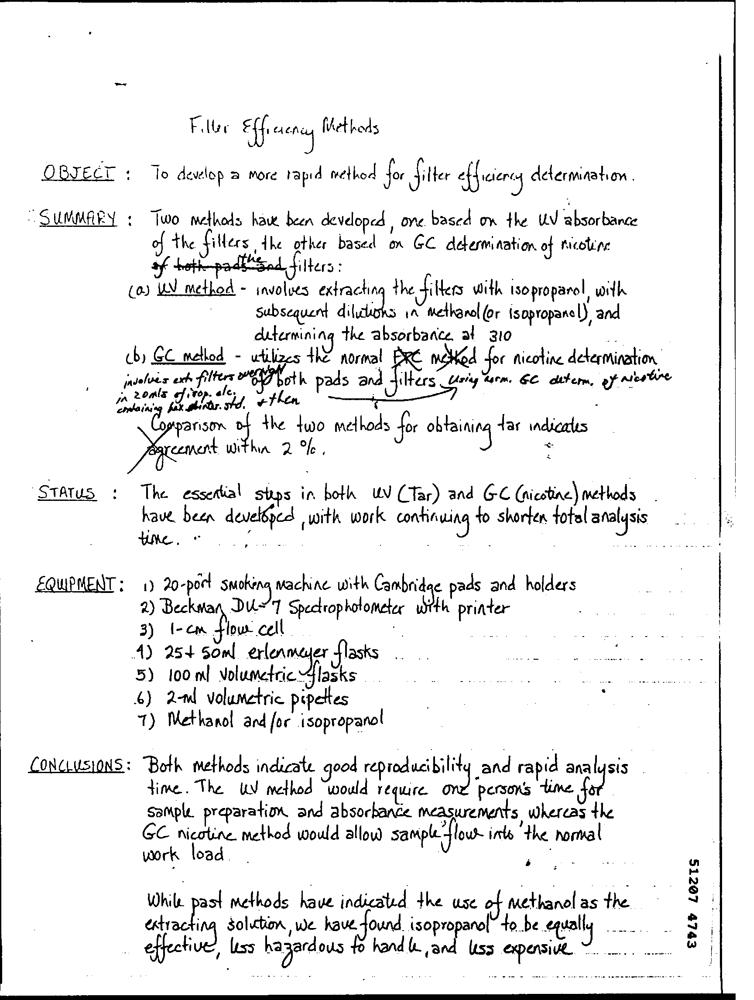 Filter Efficiency Methods
OBJECT : To develop a more rapid method for filter efficiency determination.
SUMMARY : Two methods have been developed, one based on the UV absorbance
of the filters, the other based on GC determination of nicotine
of both pads and the filters:
(a) UV method - involves extracting the filters with isopropanol, with
subsequent dilutions in methanol (or isopropanol), and
determining the absorbance at 310
(b) GC method - utilizes the normal method for nicotine determination
of both pads and filters using norm. GC determ. of nicotine
involves ext. filters
in 20 mls of isop. alc.
containing int. std. & then
Comparison of the two methods for obtaining tar indicates
agreement within 2%.
STATUS : The essential steps in both UV (Tar) and GC (nicotine) methods
have been developed, with work continuing to shorten total analysis
time.
EQUIPMENT: 1) 20-port smoking machine with Cambridge pads and holders
2) Beckman DU-7 Spectrophotometer with printer
3) 1-cm flow cell
4) 25+ 50ml erlenmeyer flasks
5) 100 ml volumetric flasks
6) 2-ml volumetric pipettes
7) Methanol and/or isopropanol
CONCLUSIONS: Both methods indicate good reproducibility and rapid analysis
time. The UV method would require one person's time for
sample preparation and absorbance measurements, whereas the
GC nicotine method would allow sample flow into the normal
work load.
While past methods have indicated the use of methanol as the
extracting solution, we have found isopropanol to be equally
effective, less hazardous to handle, and less expensive
51207 4743